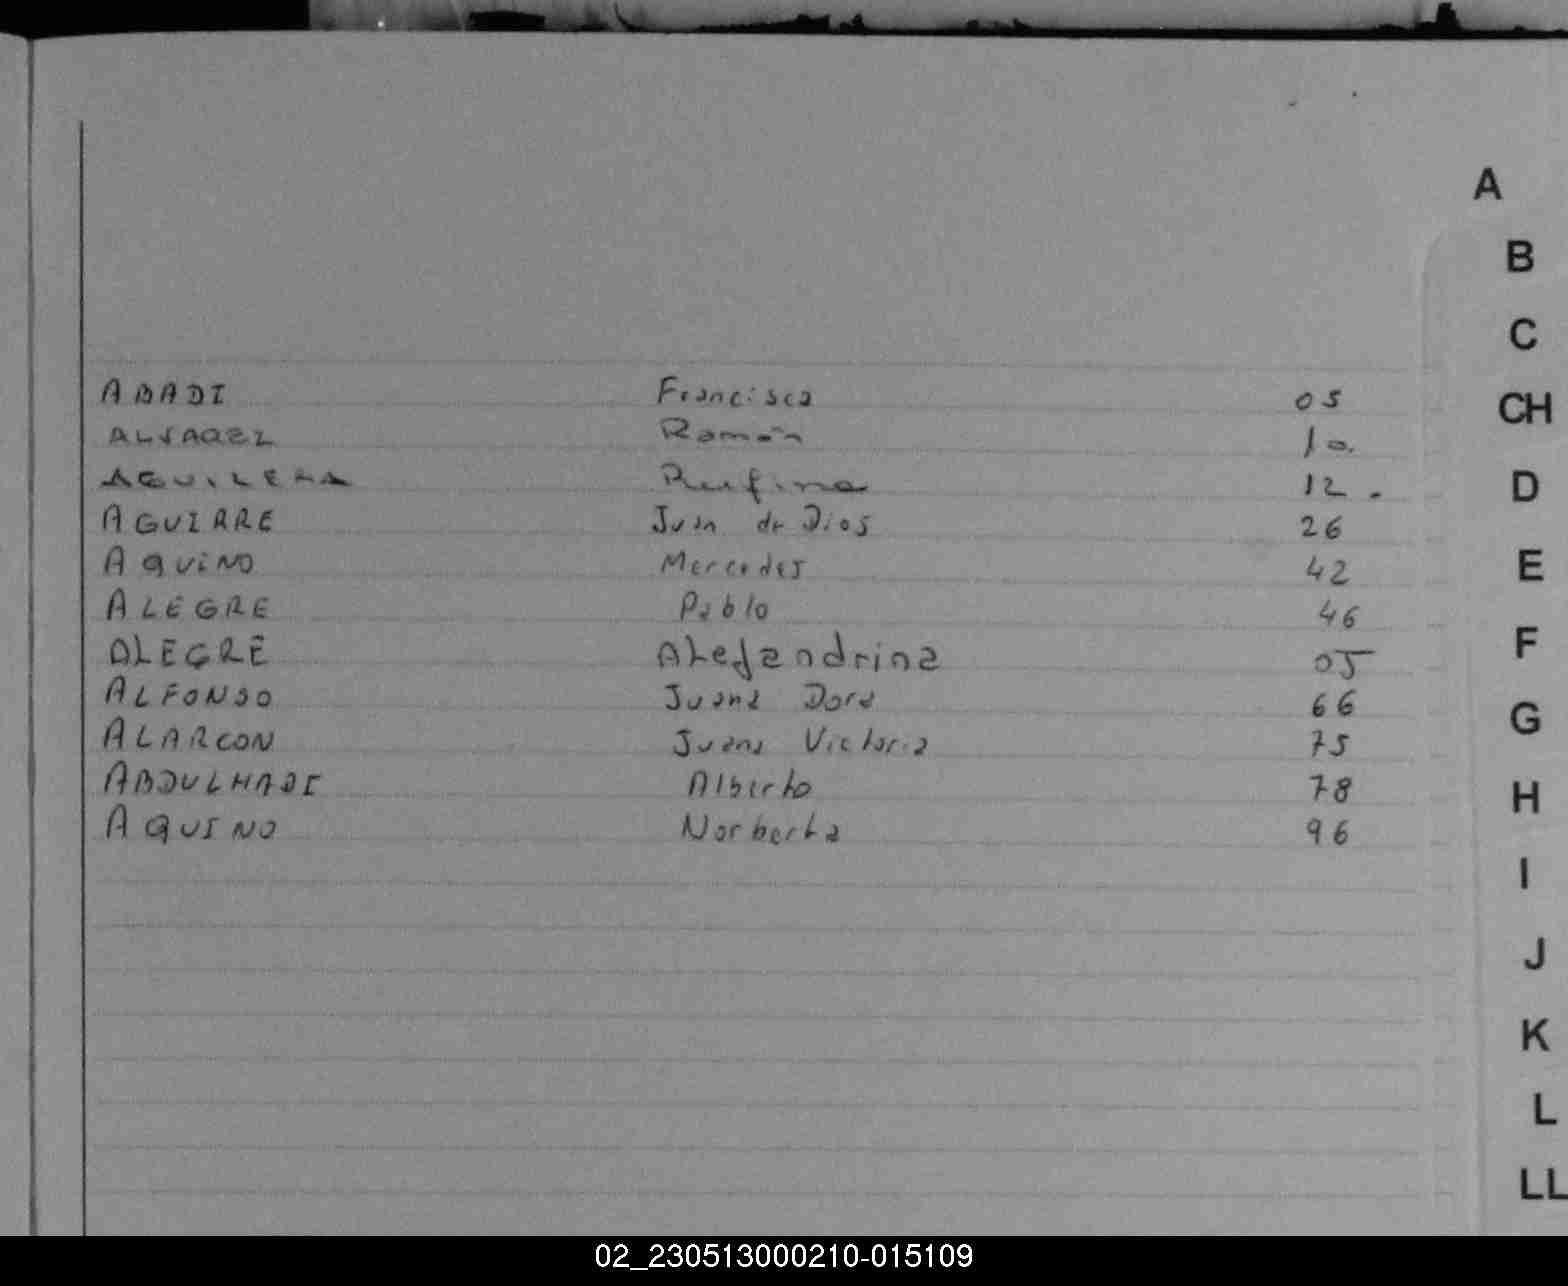 A
B
C
ABADI Francisca 05
CH
ALVAREZ Ramón 10.
AGUILERA Rufina 12.
D
AGUIRRE Juan de Dios 26
AQUiNO Mercedes 42
E
ALEGRE Pablo 46
ALEGRE ALeJandrina 05
F
ALFONSO Juana Dora 66
G
ALARCON Juana Victoria 75
ABDULHADI Alberto 78
H
AQUINO Norberta 96
I
J
K
L
LL
02_230513000210-015109